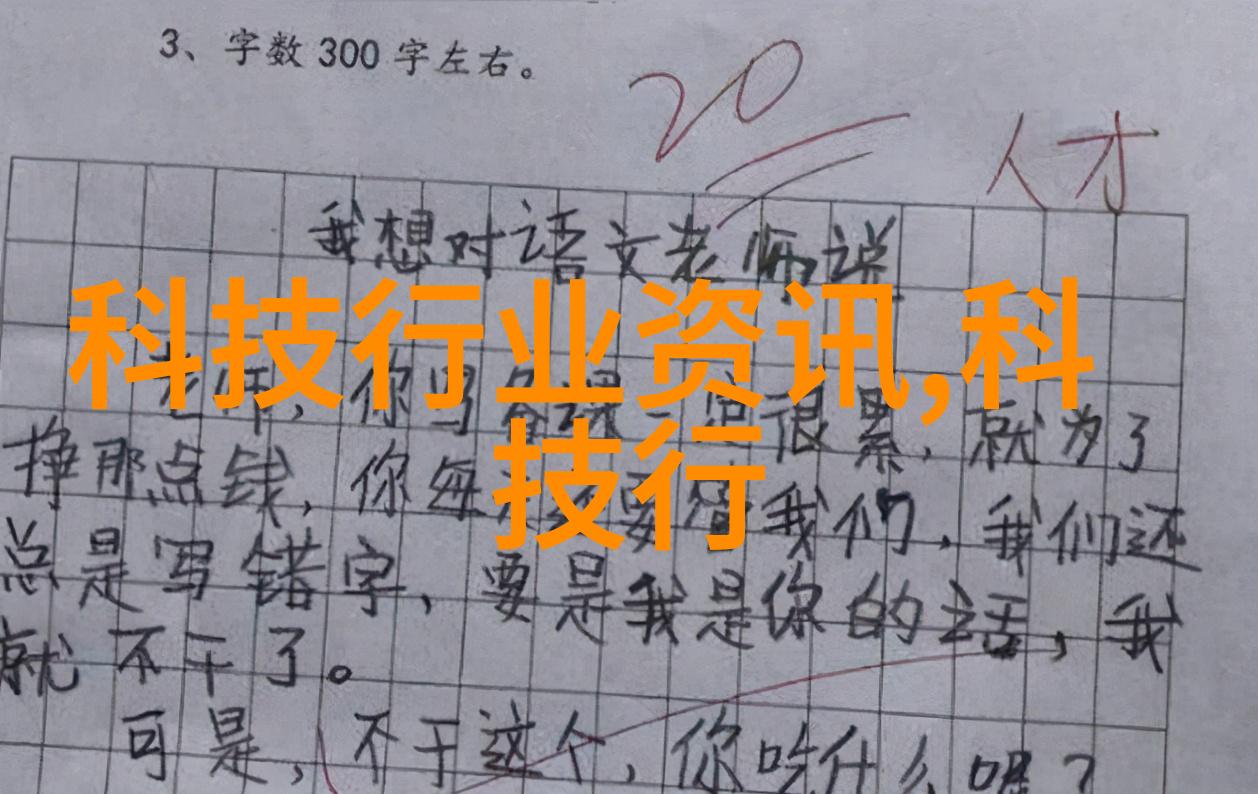 3、字数 300 字左右。
20
人才
我想对语文老师说
科技行业资讯,科
技行
老师，你写备课一定很累，就为了
挣那点钱，你每次还要管我们，我们还
总是写错字，要是我是你的话，我
就不干了。
可是，不干这个，你吃什么呢？